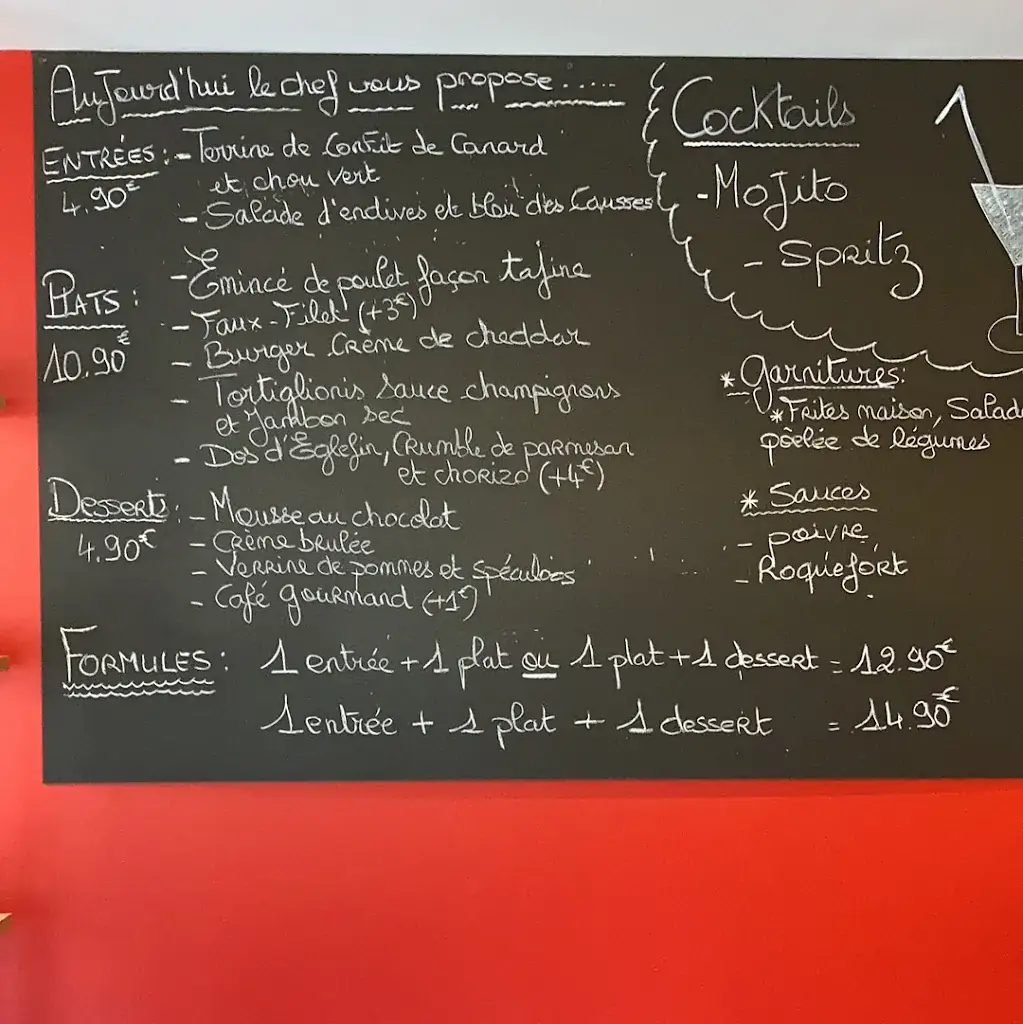 Aujourd'hui le chef vous propose.....
ENTRÉES : - Terrine de Confit de Canard
et chou vert
4.90€
- Salade d'endives et bleu des Causses
PLATS :
10.90€
- Émincé de poulet façon tajine
- Faux-Filet (+3€)
- Burger Crème de cheddar
- Tortiglionis Sauce champignons
et Jambon sec
- Dos d'Églefin, Crumble de parmesan
et chorizo (+4€)
Desserts : - Mousse au chocolat
4.90€
- Crème brulée
- Verrine de pommes et spéculoos
- Café gourmand (+1€)
FORMULES : 1 entrée + 1 plat ou 1 plat + 1 dessert = 12.90€
1 entrée + 1 plat + 1 dessert = 14.90€
Cocktails
- Mojito
- Spritz
* Garnitures:
* Frites maison, Salad
pôelée de légumes
* Sauces
- poivre
- Roquefort